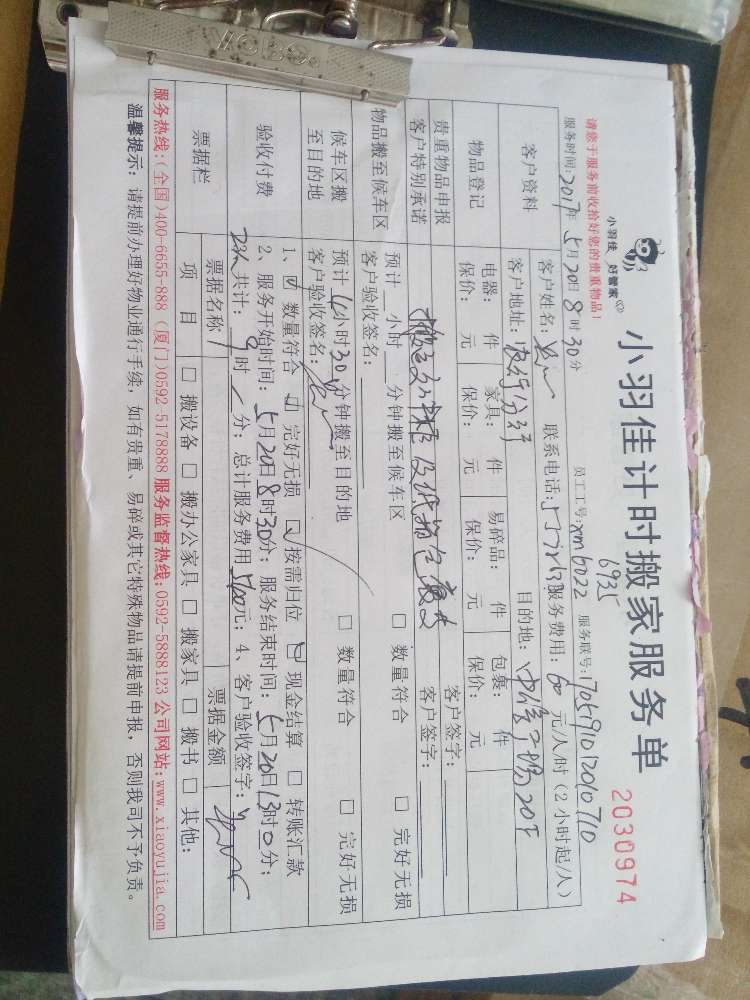 VOBO
小羽佳 好管家
小羽佳计时搬家服务单
2030974
请您于服务前收拾好您的贵重物品！
6935
员工工号：xm6022 服务联号：1705191012010710
服务时间：2017年5月20日8时30分
客户资料
客户姓名： 联系电话： 服务费用：60元/人/时（2小时起/人）
客户地址： 目的地：
物品登记
电器： 件 家具： 件 易碎品： 件 包裹： 件
保价： 元 保价： 元 保价： 元 保价： 元
贵重物品申报 客户签字：
客户特别承诺 客户签字：
物品搬至候车区
预计 小时 分钟搬至候车区 □ 数量符合 □ 完好无损
客户验收签名：
候车区搬至目的地
预计4小时30分钟搬至目的地 □ 数量符合 □ 完好无损
客户验收签名：
验收付费
1、☑ 数量符合 ☑ 完好无损 ☑ 按需归位 ☑ 现金结算 □ 转账汇款
2、服务开始时间：5月20日8时30分；服务结束时间：5月20日13时0分；
共计： 时 分；总计服务费用 元；4、客户验收签字：
票据栏
票据名称 票据金额
项目 □ 搬设备 □ 搬办公家具 □ 搬家具 □ 搬书 □ 其他：
服务热线：（全国）400-6655-888（厦门）0592 5178888 服务监督热线：0592-5888123 公司网站：www.xiaoyujia.com
温馨提示：请提前办理好物业通行手续，如有贵重、易碎或其它特殊物品请提前申报，否则我司不予负责。